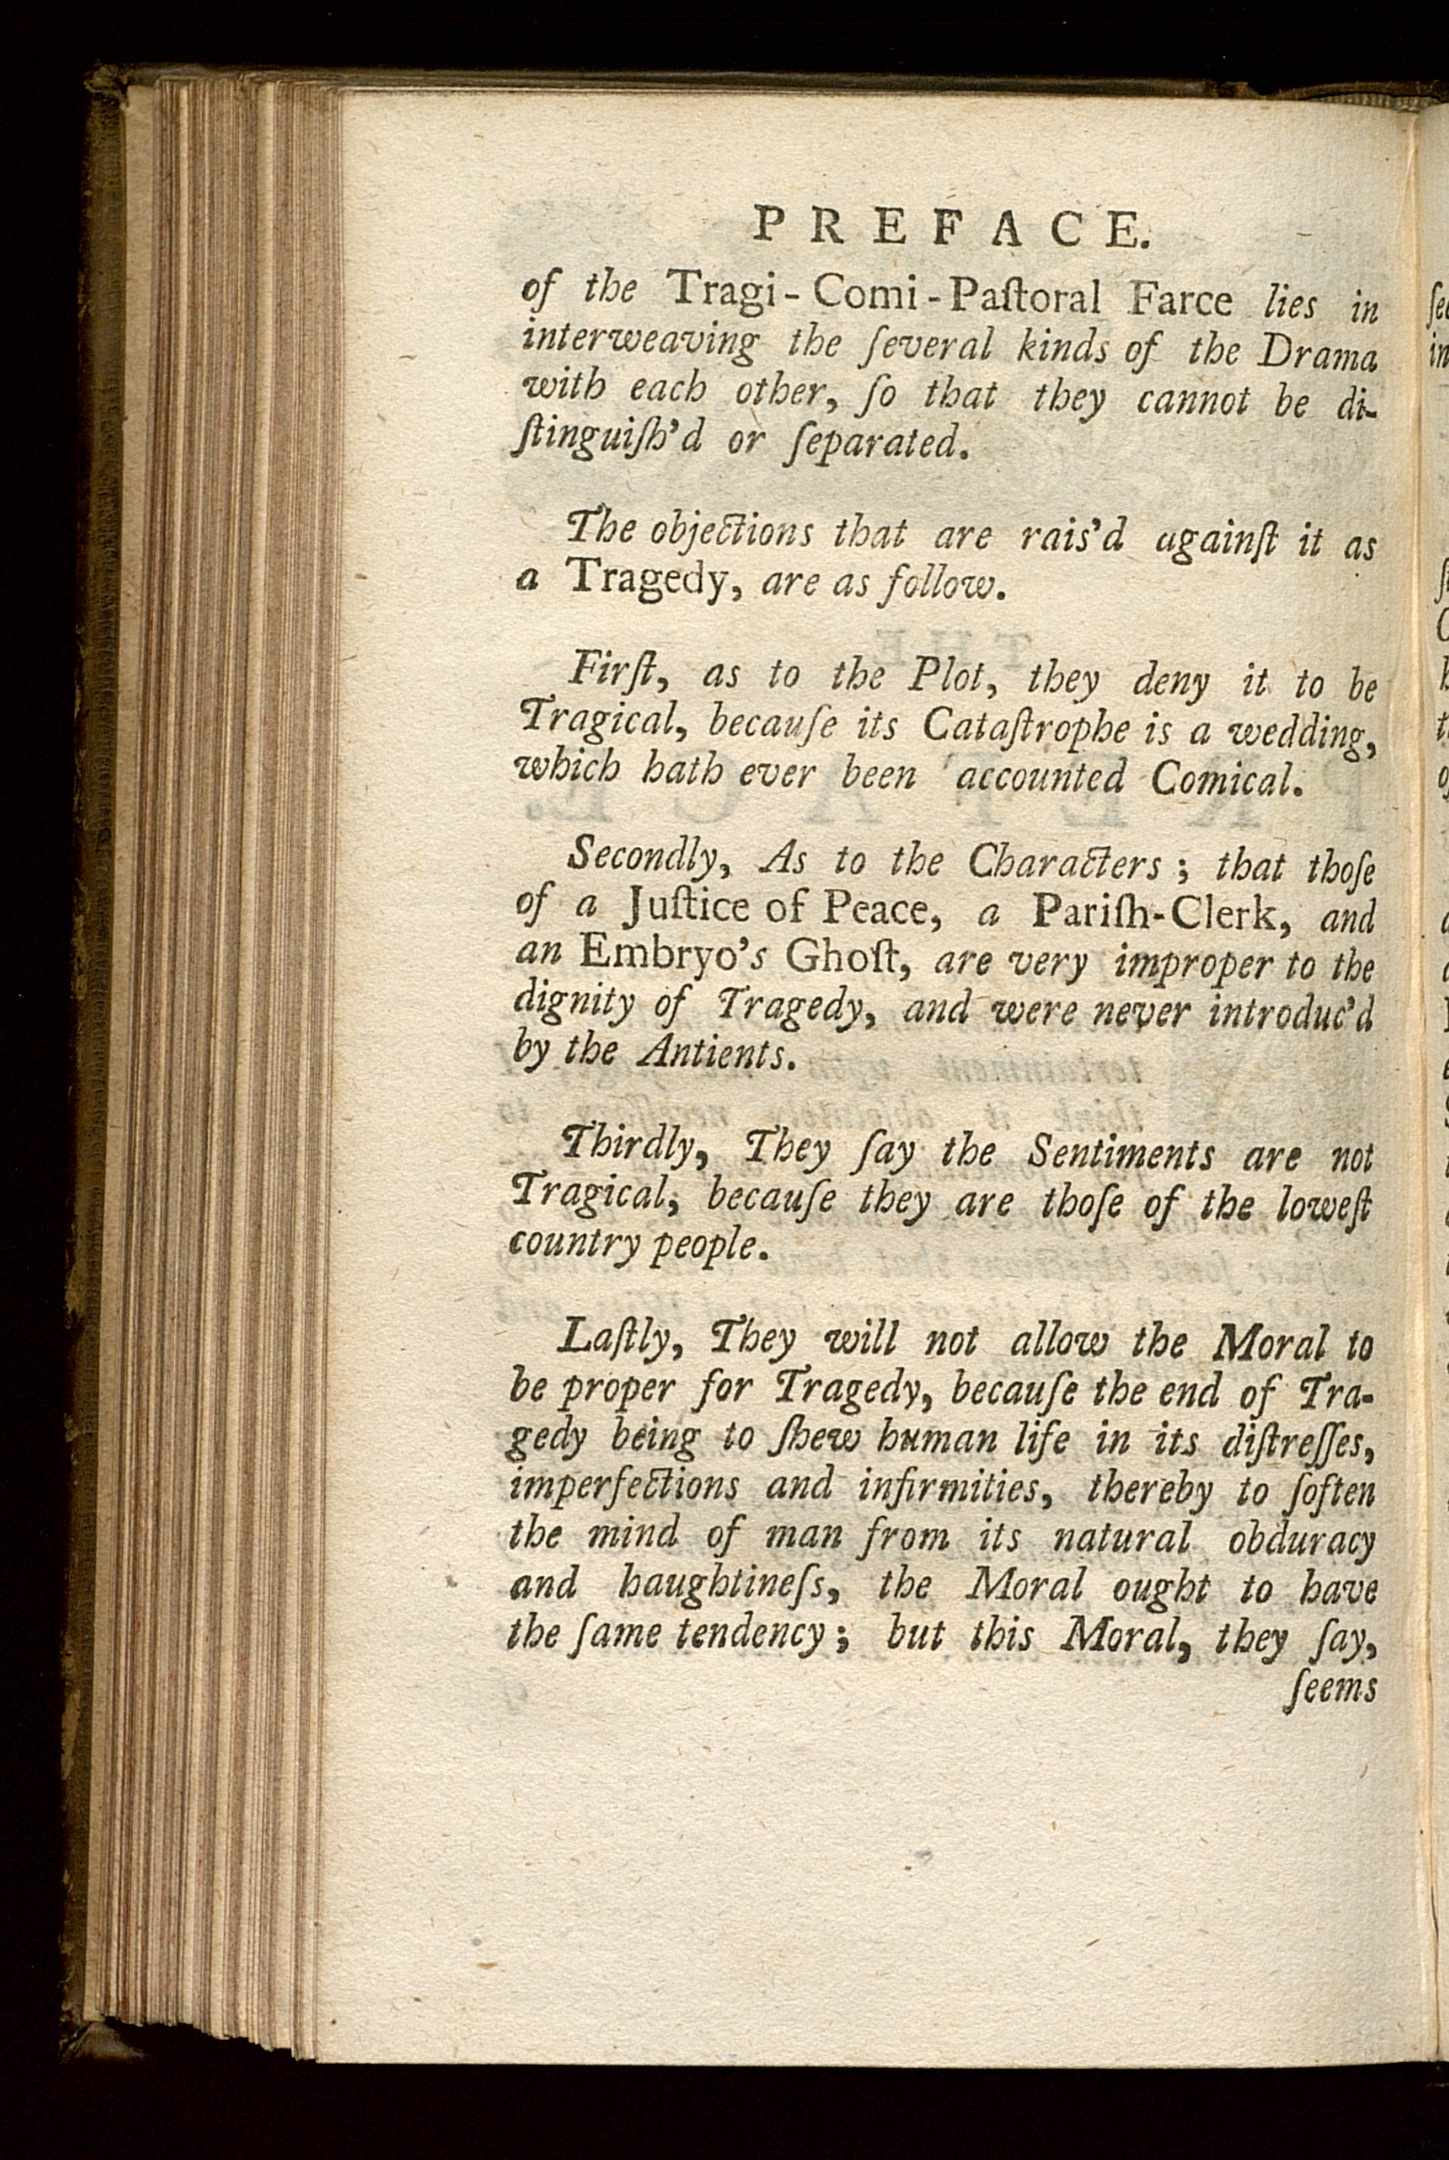 PREFACE.
of the Tragi-Comi-Paſtoral Farce lies in
interweaving the ſeveral kinds of the Drama
with each other, ſo that they cannot be di-
ſtinguiſh'd or ſeparated.
The objections that are rais'd againſt it as
a Tragedy, are as follow.
Firſt, as to the Plot, they deny it to be
Tragical, becauſe its Cataſtrophe is a wedding,
which hath ever been accounted Comical.
Secondly, As to the Characters; that thoſe
of a Juſtice of Peace, a Pariſh-Clerk, and
an Embryo's Ghoſt, are very improper to the
dignity of Tragedy, and were never introduc'd
by the Antients.
Thirdly, They ſay the Sentiments are not
Tragical, becauſe they are thoſe of the loweſt
country people.
Laſtly, They will not allow the Moral to
be proper for Tragedy, becauſe the end of Tra-
gedy being to ſhew human life in its diſtreſſes,
imperfections and infirmities, thereby to ſoften
the mind of man from its natural obduracy
and haughtineſs, the Moral ought to have
the ſame tendency; but this Moral, they ſay,
ſeems